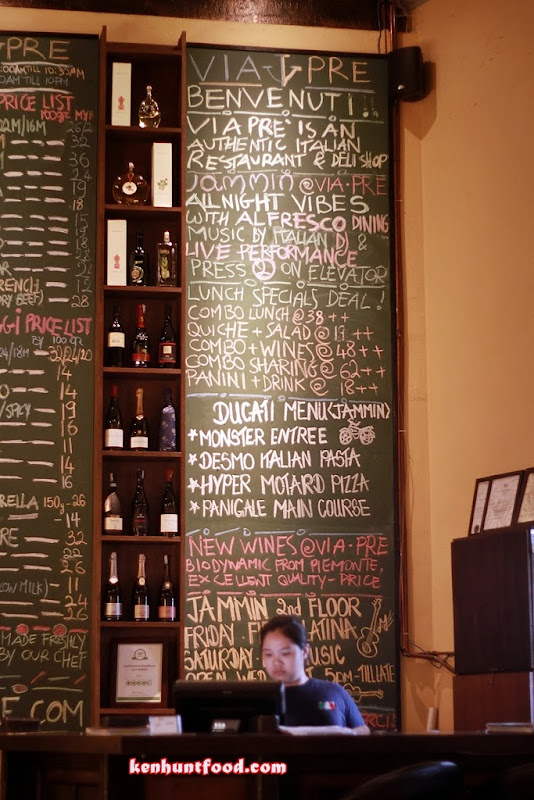 PRE
TILL 10:30PM
TILL 10PM
PRICE LIST
100gr MYR
22M/16M 26/2
32
36
24
19
18
15
FRENCH
BEEF) — 28
GGI PRICE LIST
BY 100 gr
24/18M — 32/24/20
14
14
/SPICY — 19
16
11
14
16
RELLA 150g - 26
14
32
22
26
LOW MILK)
11
24
26
MADE FRESHLY
BY OUR CHEF
E.COM
VIA PRE
BENVENUTI!!
VIA PRE' IS AN
AUTHENTIC ITALIAN
RESTAURANT & DELI SHOP
JAMMIN@VIA·PRE
ALL NIGHT VIBES
WITH ALFRESCO DINING
MUSIC BY ITALIAN DJ &
LIVE PERFORMANCE
PRESS 2 ON ELEVATOR
LUNCH SPECIALS DEAL!
COMBO LUNCH @ 38 ++
QUICHE + SALAD @ 19 ++
COMBO + WINES @ 48 ++
COMBO SHARING @ 62 ++
PANINI + DRINK @ 18 ++
DUCATI MENU (JAMMIN)
*MONSTER ENTREE
*DESMO ITALIAN PASTA
*HYPER MOTARD PIZZA
*PANIGALE MAIN COURSE
NEW WINES@VIA·PRE
BIODYNAMIC FROM PIEMONTE,
EXCELLENT QUALITY-PRICE
JAMMIN 2nd FLOOR
FRIDAY LATINA
SATURDAY MUSIC
OPEN WED 5PM-TILL LATE
kenhuntfood.com